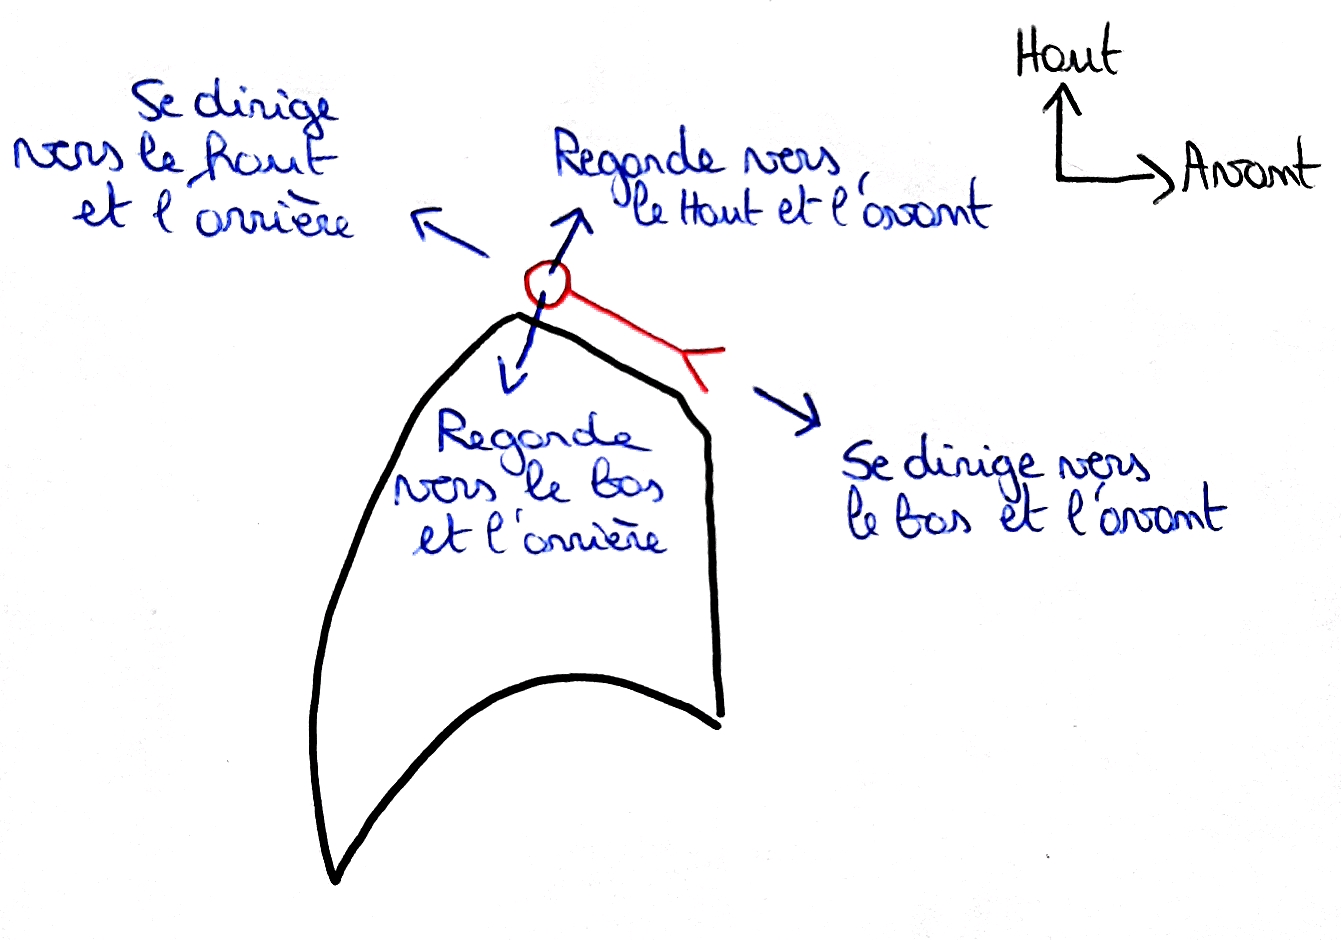 Haut
Avant
Se dirige
vers le haut
et l'arrière
Regarde vers
le Haut et l'avant
Regarde
vers le bas
et l'arrière
Se dirige vers
le bas et l'avant